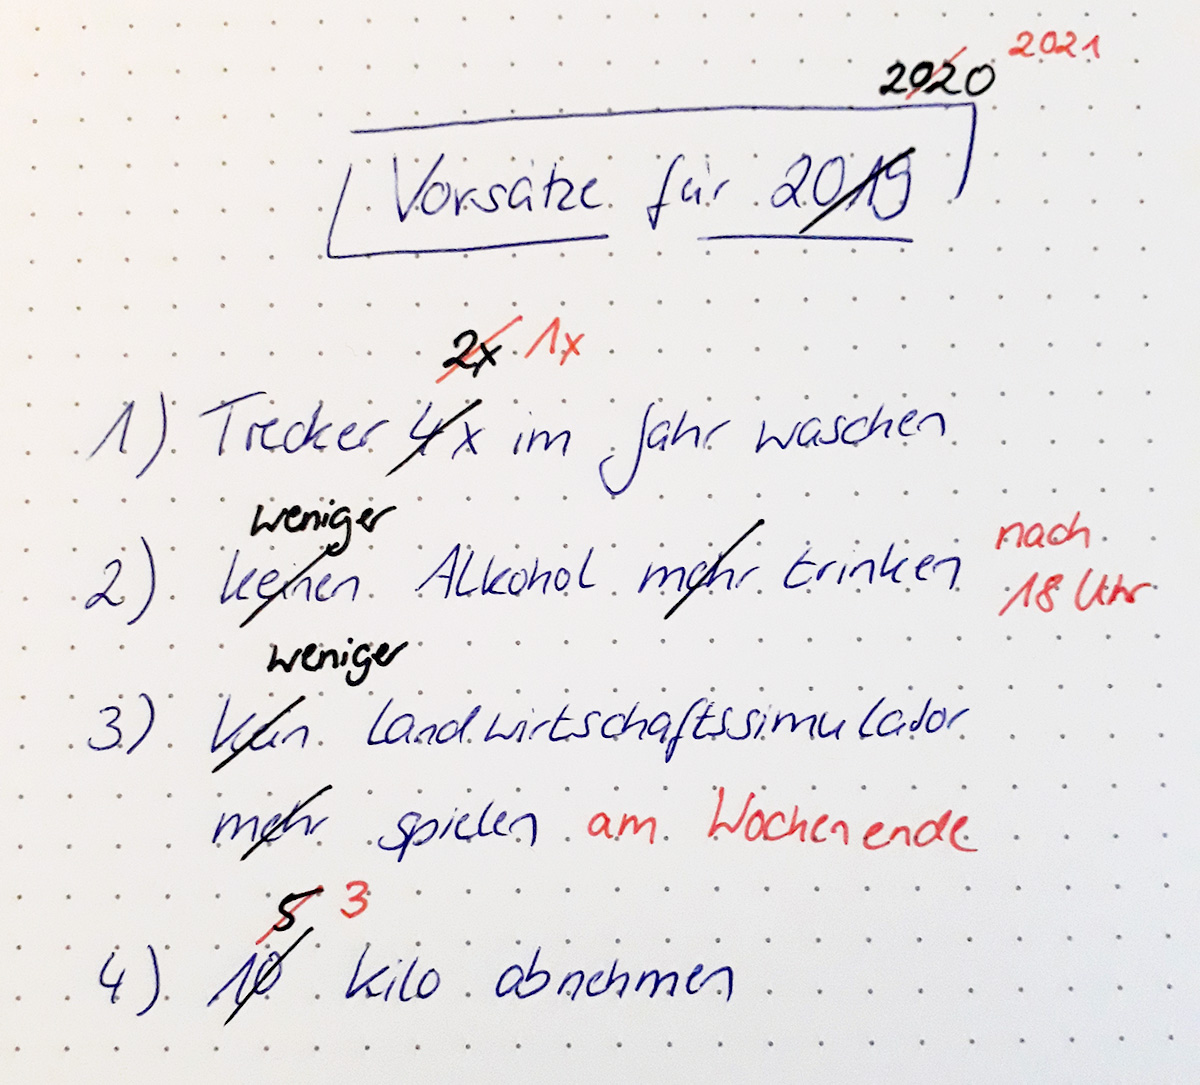 2020 2021
Vorsätze für 2019
2x 1x
1) Trecker 4x im Jahr waschen
weniger
2) keinen Alkohol mehr trinken nach 18 Uhr
weniger
3) Kein Landwirtschaftssimulator
mehr spielen am Wochenende
5 3
4) 10 Kilo abnehmen